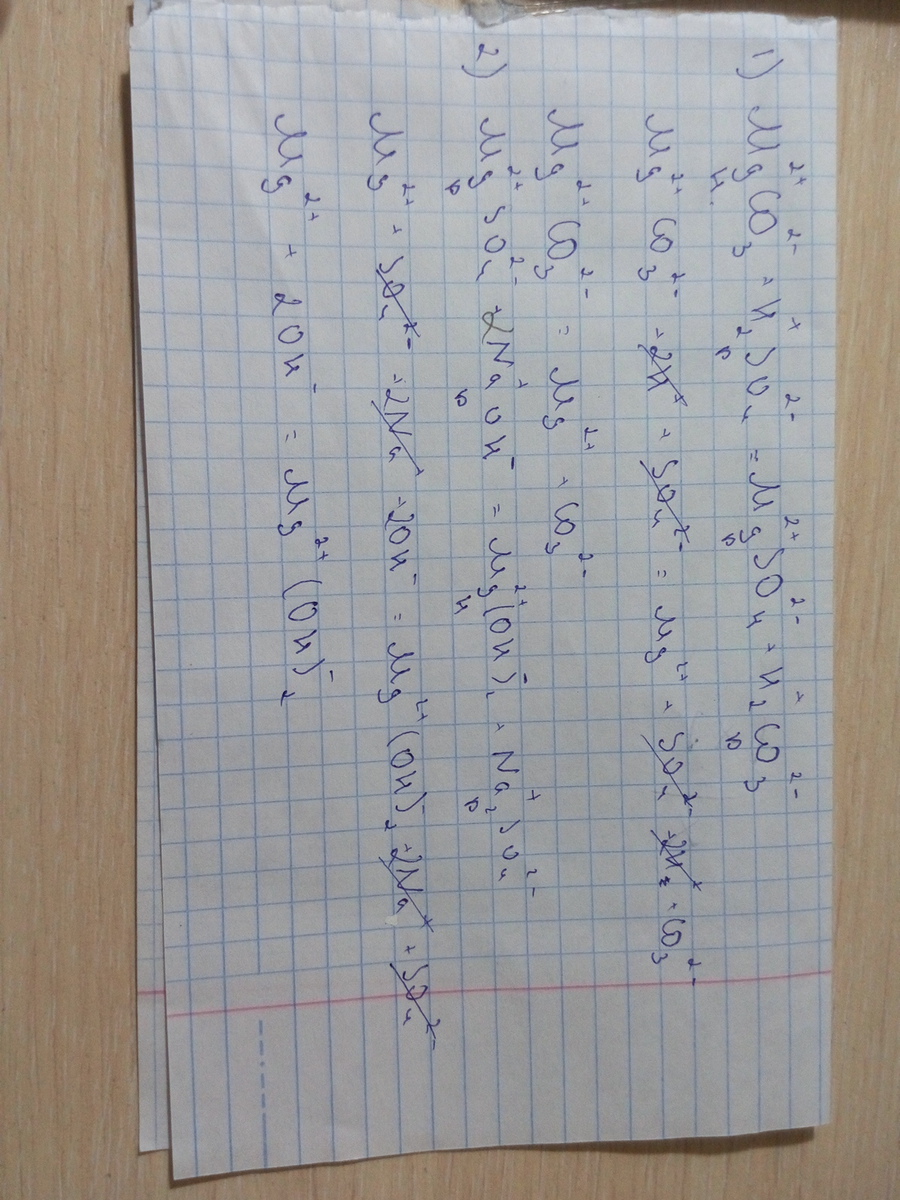 1) Mg²⁺CO₃²⁻ + H₂⁺SO₄²⁻ = Mg²⁺SO₄²⁻ + H₂⁺CO₃²⁻
н р р р
Mg²⁺CO₃²⁻ + 2H⁺ + SO₄²⁻ = Mg²⁺ + SO₄²⁻ + 2H₂⁺ + CO₃²⁻
Mg²⁺CO₃²⁻ = Mg²⁺ + CO₃²⁻
2) Mg²⁺SO₄²⁻ + 2Na⁺OH⁻ = Mg²⁺(OH)₂⁻ + Na₂⁺SO₄²⁻
р р н р
Mg²⁺ + SO₄²⁻ + 2Na⁺ + 2OH⁻ = Mg²⁺(OH)₂⁻ + 2Na⁺ + SO₄²⁻
Mg²⁺ + 2OH⁻ = Mg²⁺(OH)₂⁻